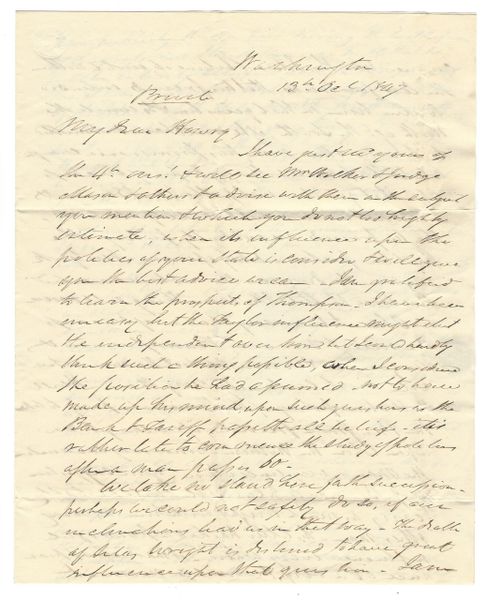 Washington
13th Oct 1847
Private
My Dear Henry
I have just recd yours of
the 4th inst & will see Mr Walker & Judge
Mason & others & advise with them on the subject
you mention & which you do not too highly
estimate, when its influences upon the
politics of your State is considered & will give
you the best advice we can. I am gratified
to learn the prospects of Thompson. I have been
uneasy but the Taylor influence might elect
the independent over him but I can hardly
think such a thing possible, when I consider
the position he had assumed not to have
made up his mind upon such questions as the
Bank & Tariff passeth all belief. it is
rather late to commence the study of politics
after a man passes 60.
We take no stand here for the succession
perhaps we could not safely do so, if our
inclinations lead us in that way. The death
of Silas Wright is destined to have great
influence upon that question. I am